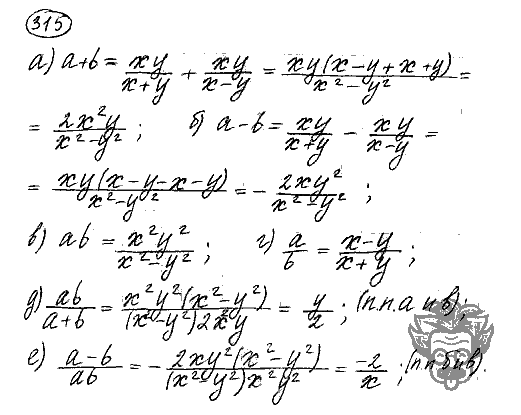 315
а) a+b = xy/(x+y) + xy/(x-y) = xy(x-y+x+y)/(x²-y²) =
= 2x²y/(x²-y²) ; б) a-b = xy/(x+y) - xy/(x-y) =
= xy(x-y-x-y)/(x²-y²) = - 2xy²/(x²-y²) ;
в) ab = x²y²/(x²-y²) ; г) a/b = (x-y)/(x+y) ;
д) ab/(a+b) = x²y²(x²-y²)/((x²-y²)2x²y) = y/2 ; (п.п. а и в) ;
е) (a-b)/ab = - 2xy²(x²-y²)/((x²-y²)x²y²) = -2/x ; (п.п б и в).